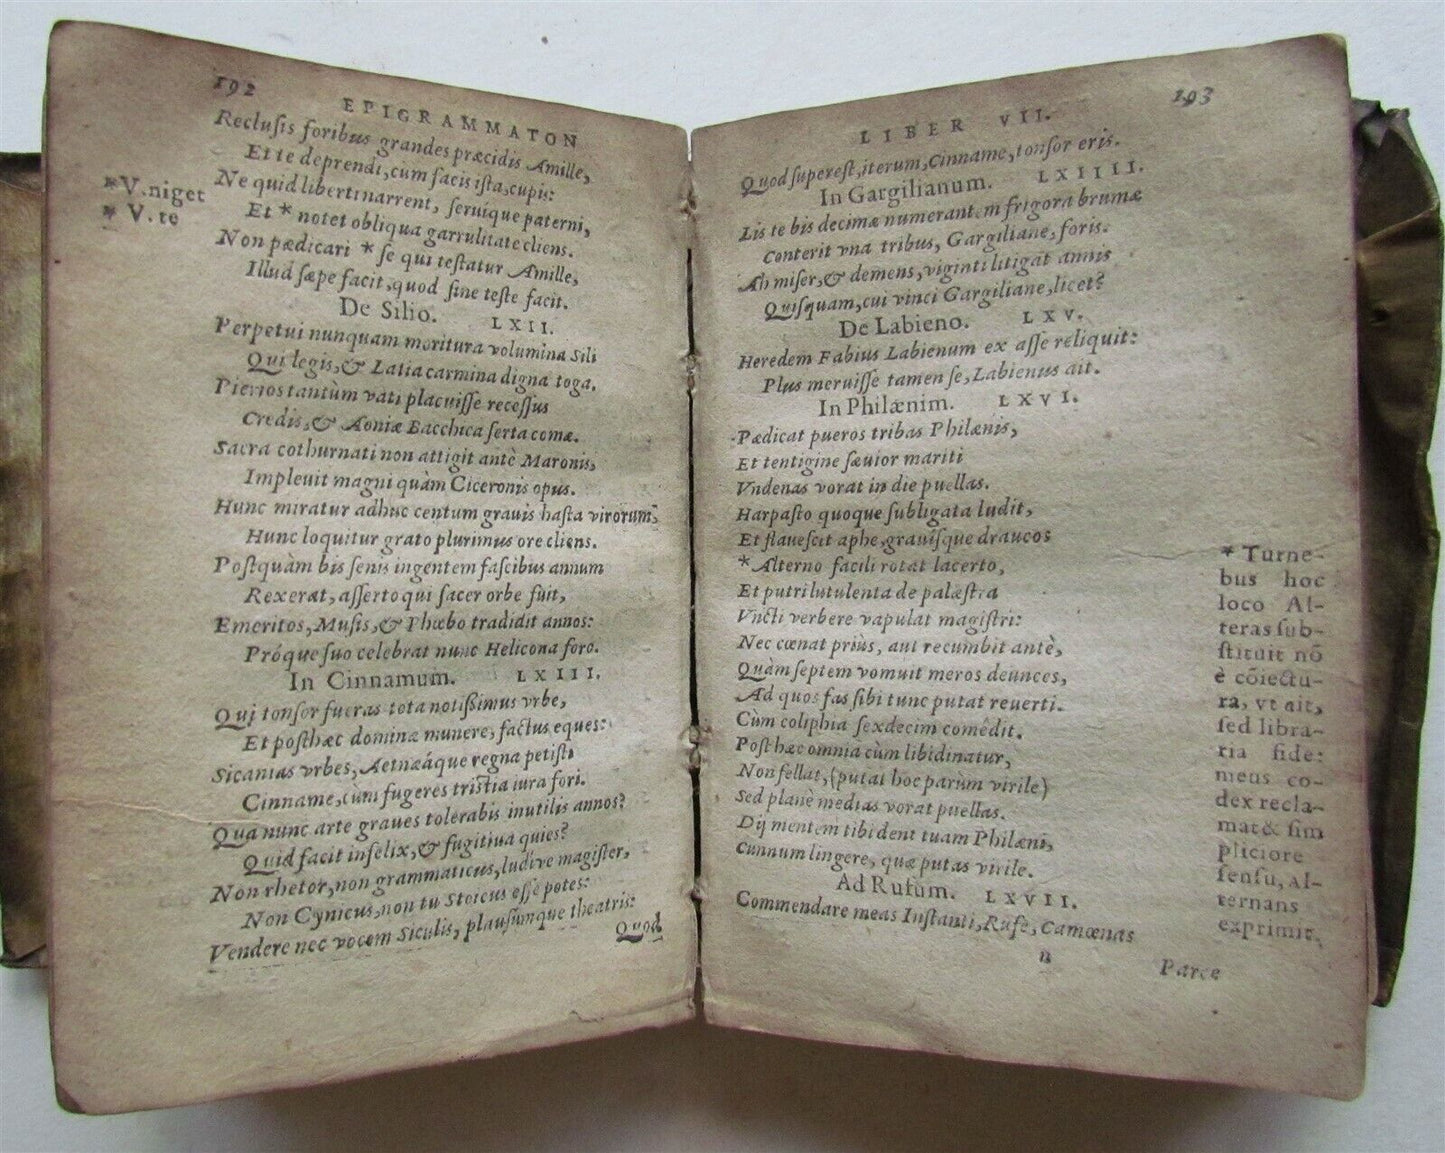 192
EPIGRAMMATON
Reclusis foribus grandes præcidis Amille,
Et te deprendi, cum facis ista, cupis:
Ne quid liberti narrent, seruique paterni,
Et * notet obliqua garrulitate cliens.
Non pædicari * se qui testatur Amille,
Illud sæpe facit, quod sine teste facit.
* V. niget
* V. te
De Silio. LXII.
Perpetui nunquam moritura volumina Sili
Qui legis, & Latia carmina digna toga.
Pierios tantùm vati placuisse recessus
Credis, & Aoniæ Bacchica serta comæ.
Sacra cothurnati non attigit antè Maronis,
Impleuit magni quàm Ciceronis opus.
Hunc miratur adhuc centum grauis hasta virorum,
Hunc loquitur grato plurimus ore cliens.
Postquàm bis senis ingentem fascibus annum
Rexerat, asserto qui sacer orbe fuit,
Emeritos, Musis, & Phœbo tradidit annos:
Próque suo celebrat nunc Helicona foro.
In Cinnamum. LXIII.
Qui tonsor fueras tota notissimus vrbe,
Et posthæc dominæ munere, factus eques:
Sicanias vrbes, Aetnæáque regna petisti
Cinname, cùm fugeres tristia iura fori.
Qua nunc arte graues tolerabis inutilis annos?
Quid facit infelix, & fugitiua quies?
Non rhetor, non grammaticus, ludive magister,
Non Cynicus, non tu Stoicus esse potes:
Vendere nec vocem Siculis, plausúmque theatris:
Quod
LIBER VII.
193
Quod superest, iterum, Cinname, tonsor eris.
In Gargilianum. LXIIII.
Lis te bis decimæ numerantem frigora brumæ
Conterit vna tribus, Gargiliane, foris.
Ah miser, & demens, viginti litigat annis
Quisquam, cui vinci Gargiliane, licet?
De Labieno. LXV.
Heredem Fabius Labienum ex asse reliquit:
Plus meruisse tamen se, Labienus ait.
In Philænim. LXVI.
Pædicat pueros tribas Philænis,
Et tentigine sæuior mariti
Vndenas vorat in die puellas.
Harpasto quoque subligata ludit,
Et flauescit aphe, grauísque draucos
* Alterno facili rotat lacerto,
Et putri lutulenta de palæstra
Vncti verbere vapulat magistri:
Nec cœnat priùs, aut recumbit antè,
Quàm septem vomuit meros deunces,
Ad quos fas sibi tunc putat reuerti.
Cùm coliphia sexdecim comêdit.
Post hæc omnia cùm libidinatur,
Non fellat, (putat hoc parùm virile)
Sed planè medias vorat puellas.
Dij mentem tibi dent tuam Philæni,
Cunnum lingere, quæ putas virile.
Ad Rufum. LXVII.
Commendare meas Instanti, Rufe, Camœnas
* Turne-
bus hoc
loco Al-
teras sub-
stituit nō
è cōiectu-
ra, vt ait,
sed libra-
ria fide:
meus co-
dex recla-
mat & sim
pliciore
sensu, al-
ternans
exprimit.
n
Parce